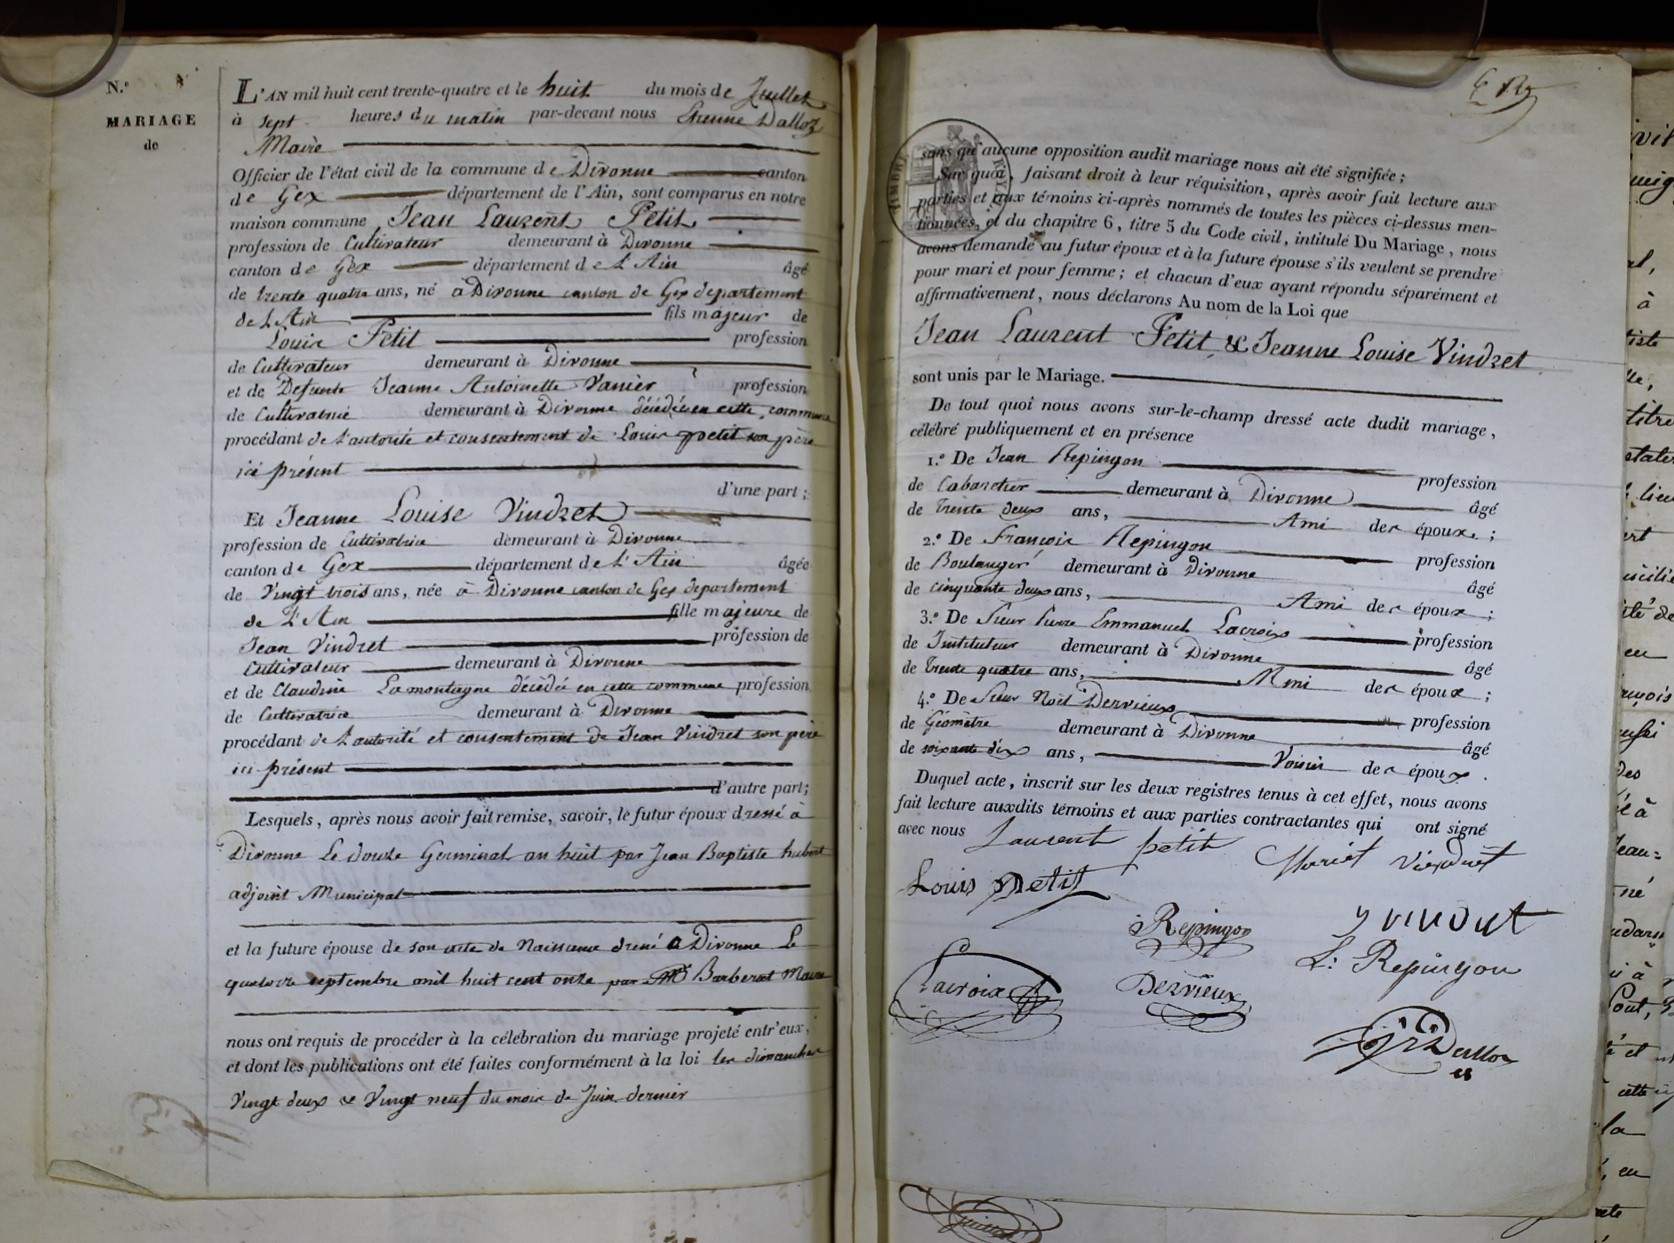 N.°
MARIAGE
de
L'AN mil huit cent trente-quatre et le huit du mois de Juillet
à sept heures du matin par-devant nous Etienne Dalloz
Maire
Officier de l'état civil de la commune de Divonne canton
de Gex département de l'Ain, sont comparus en notre
maison commune Jean Laurent Petit
profession de Cultivateur demeurant à Divonne
canton de Gex département de L'Ain âgé
de trente quatre ans, né à Divonne canton de Gex departement
de L'Ain fils majeur de
Louis Petit profession
de Cultivateur demeurant à Divonne
et de Defunte Jeanne Antoinette Vanier profession
de Cultivatrice demeurant à Divonne décédée en cette commune
procédant de L'autorité et consentement de Louis petit son père
ici présent
d'une part;
Et Jeanne Louise Vindret
profession de Cultivatrice demeurant à Divonne
canton de Gex département de L'Ain âgée
de Vingt trois ans, née à Divonne canton de Gex departement
de L'Ain fille majeure de
Jean Vindret profession de
Cultivateur demeurant à Divonne
et de Claudine Lamontagne décédée en cette commune profession
de Cultivatrice demeurant à Divonne
procédant de L'autorité et consentement de Jean Vindret son père
ici présent
d'autre part;
Lesquels, après nous avoir fait remise, savoir, le futur époux dressé à
Divonne Le douze Germinal an huit par Jean Baptiste hubert
adjoint Municipal
et la future épouse de son acte de Naissance dressé à Divonne Le
quatorze septembre mil huit cent onze par Mr Barberat Maire
nous ont requis de procéder à la célébration du mariage projeté entr'eux,
et dont les publications ont été faites conformément à la loi les dimanches
Vingt deux & Vingt neuf du mois de Juin dernier
TIMBRE ROYAL
sans qu'aucune opposition audit mariage nous ait été signifiée;
Sur quoi, faisant droit à leur réquisition, après avoir fait lecture aux
parties et aux témoins ci-après nommés de toutes les pièces ci-dessus men-
tionnées, et du chapitre 6, titre 5 du Code civil, intitulé Du Mariage, nous
avons demandé au futur époux et à la future épouse s'ils veulent se prendre
pour mari et pour femme; et chacun d'eux ayant répondu séparément et
affirmativement, nous déclarons Au nom de la Loi que
Jean Laurent Petit & Jeanne Louise Vindret
sont unis par le Mariage.
De tout quoi nous avons sur-le-champ dressé acte dudit mariage,
célébré publiquement et en présence
1.° De Jean Repingon profession
de Cabaretier demeurant à Divonne âgé
de trente deux ans, Ami des époux;
2.° De François Repingon profession
de Boulanger demeurant à Divonne âgé
de cinquante deux ans, Ami des époux;
3.° De Sieur Pierre Emmanuel Lacroix profession
de Instituteur demeurant à Divonne âgé
de trente quatre ans, Ami des époux;
4.° De Sieur Noël Dervieux profession
de Géomètre demeurant à Divonne âgé
de soixante dix ans, Voisin des époux.
Duquel acte, inscrit sur les deux registres tenus à cet effet, nous avons
fait lecture auxdits témoins et aux parties contractantes qui ont signé
avec nous Laurent petit
Louis petit
Repingon
Repingon
Lacroix
Dervieux
Dalloz